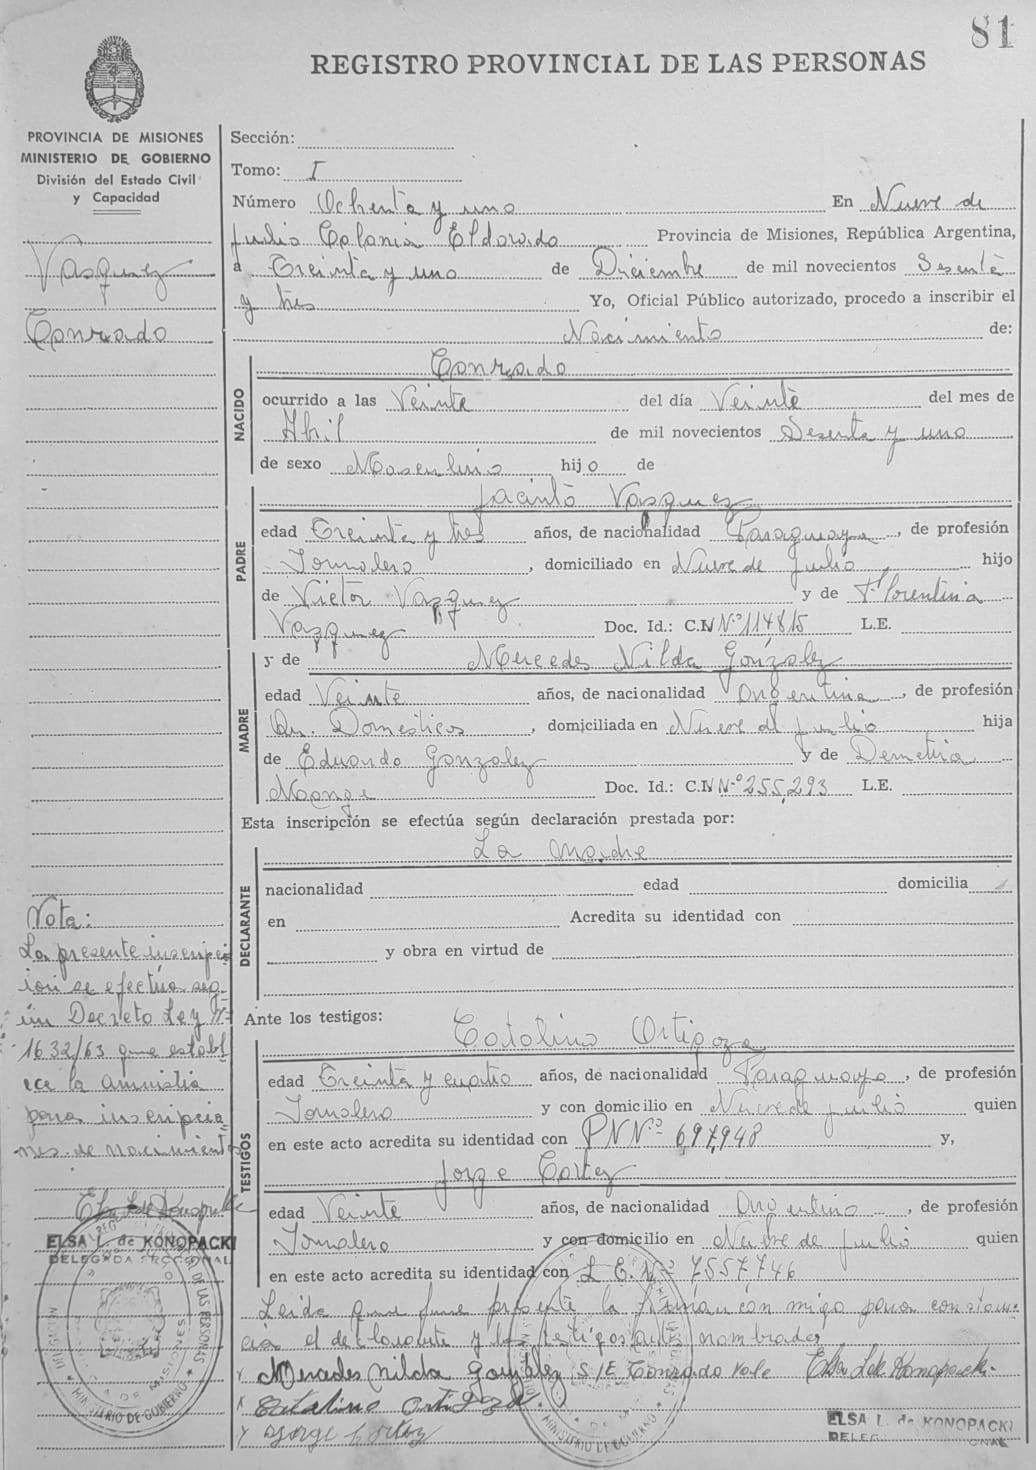 81
REGISTRO PROVINCIAL DE LAS PERSONAS
PROVINCIA DE MISIONES
MINISTERIO DE GOBIERNO
División del Estado Civil
y Capacidad
Vasquez
Conrado
Nota:
La presente inscripc
ion se efectúa seg-
ún Decreto Ley Nº
1632/63 que establ
ece la amnistia
para inscripcio
nes de nacimiento
ELSA L. de KONOPACKI
DELEGADA SECCIONAL
Sección:
Tomo: I
Número Ochenta y uno En Nueve de
Julio Colonia Eldorado Provincia de Misiones, República Argentina,
a Treinta y uno de Diciembre de mil novecientos Sesenta
y tres Yo, Oficial Público autorizado, procedo a inscribir el
Nacimiento de:
NACIDO
Conrado
ocurrido a las Veinte del día Veinte del mes de
Abril de mil novecientos Sesenta y uno
de sexo Masculino hijo de
PADRE
Jacinto Vasquez
edad Treinta y tres años, de nacionalidad Paraguaya, de profesión
Jornalero, domiciliado en Nueve de Julio hijo
de Victor Vazquez y de Florentina
Vazquez Doc. Id.: C.I. Nº 114815 L.E.
MADRE
y de Mercedes Nilda González
edad Veinte años, de nacionalidad Argentina, de profesión
Qu. Domésticos, domiciliada en Nueve de Julio hija
de Eduardo Gonzalez y de Demetria
Doc. Id.: C.I. Nº 255,293 L.E.
Esta inscripción se efectúa según declaración prestada por:
DECLARANTE
La Madre
nacionalidad edad domicilia
en Acredita su identidad con
y obra en virtud de
Ante los testigos:
TESTIGOS
Catalino Ortigoza
edad Treinta y cuatro años, de nacionalidad Paraguaya, de profesión
Jornalero y con domicilio en Nueve de Julio quien
en este acto acredita su identidad con P N Nº 697,948 y,
Jorge Cortez
edad Veinte años, de nacionalidad Argentino, de profesión
Jornalero y con domicilio en Nueve de Julio quien
en este acto acredita su identidad con L E. Nº 7557746
Leida que fue presente la firman con migo para constan-
cia el declarante y los testigos antes nombrados
Mercedes Nilda González S/E Conrado Vale Elsa L de Konopacki
Catalino Ortigoza
Jorge Cortez
ELSA L. de KONOPACKI